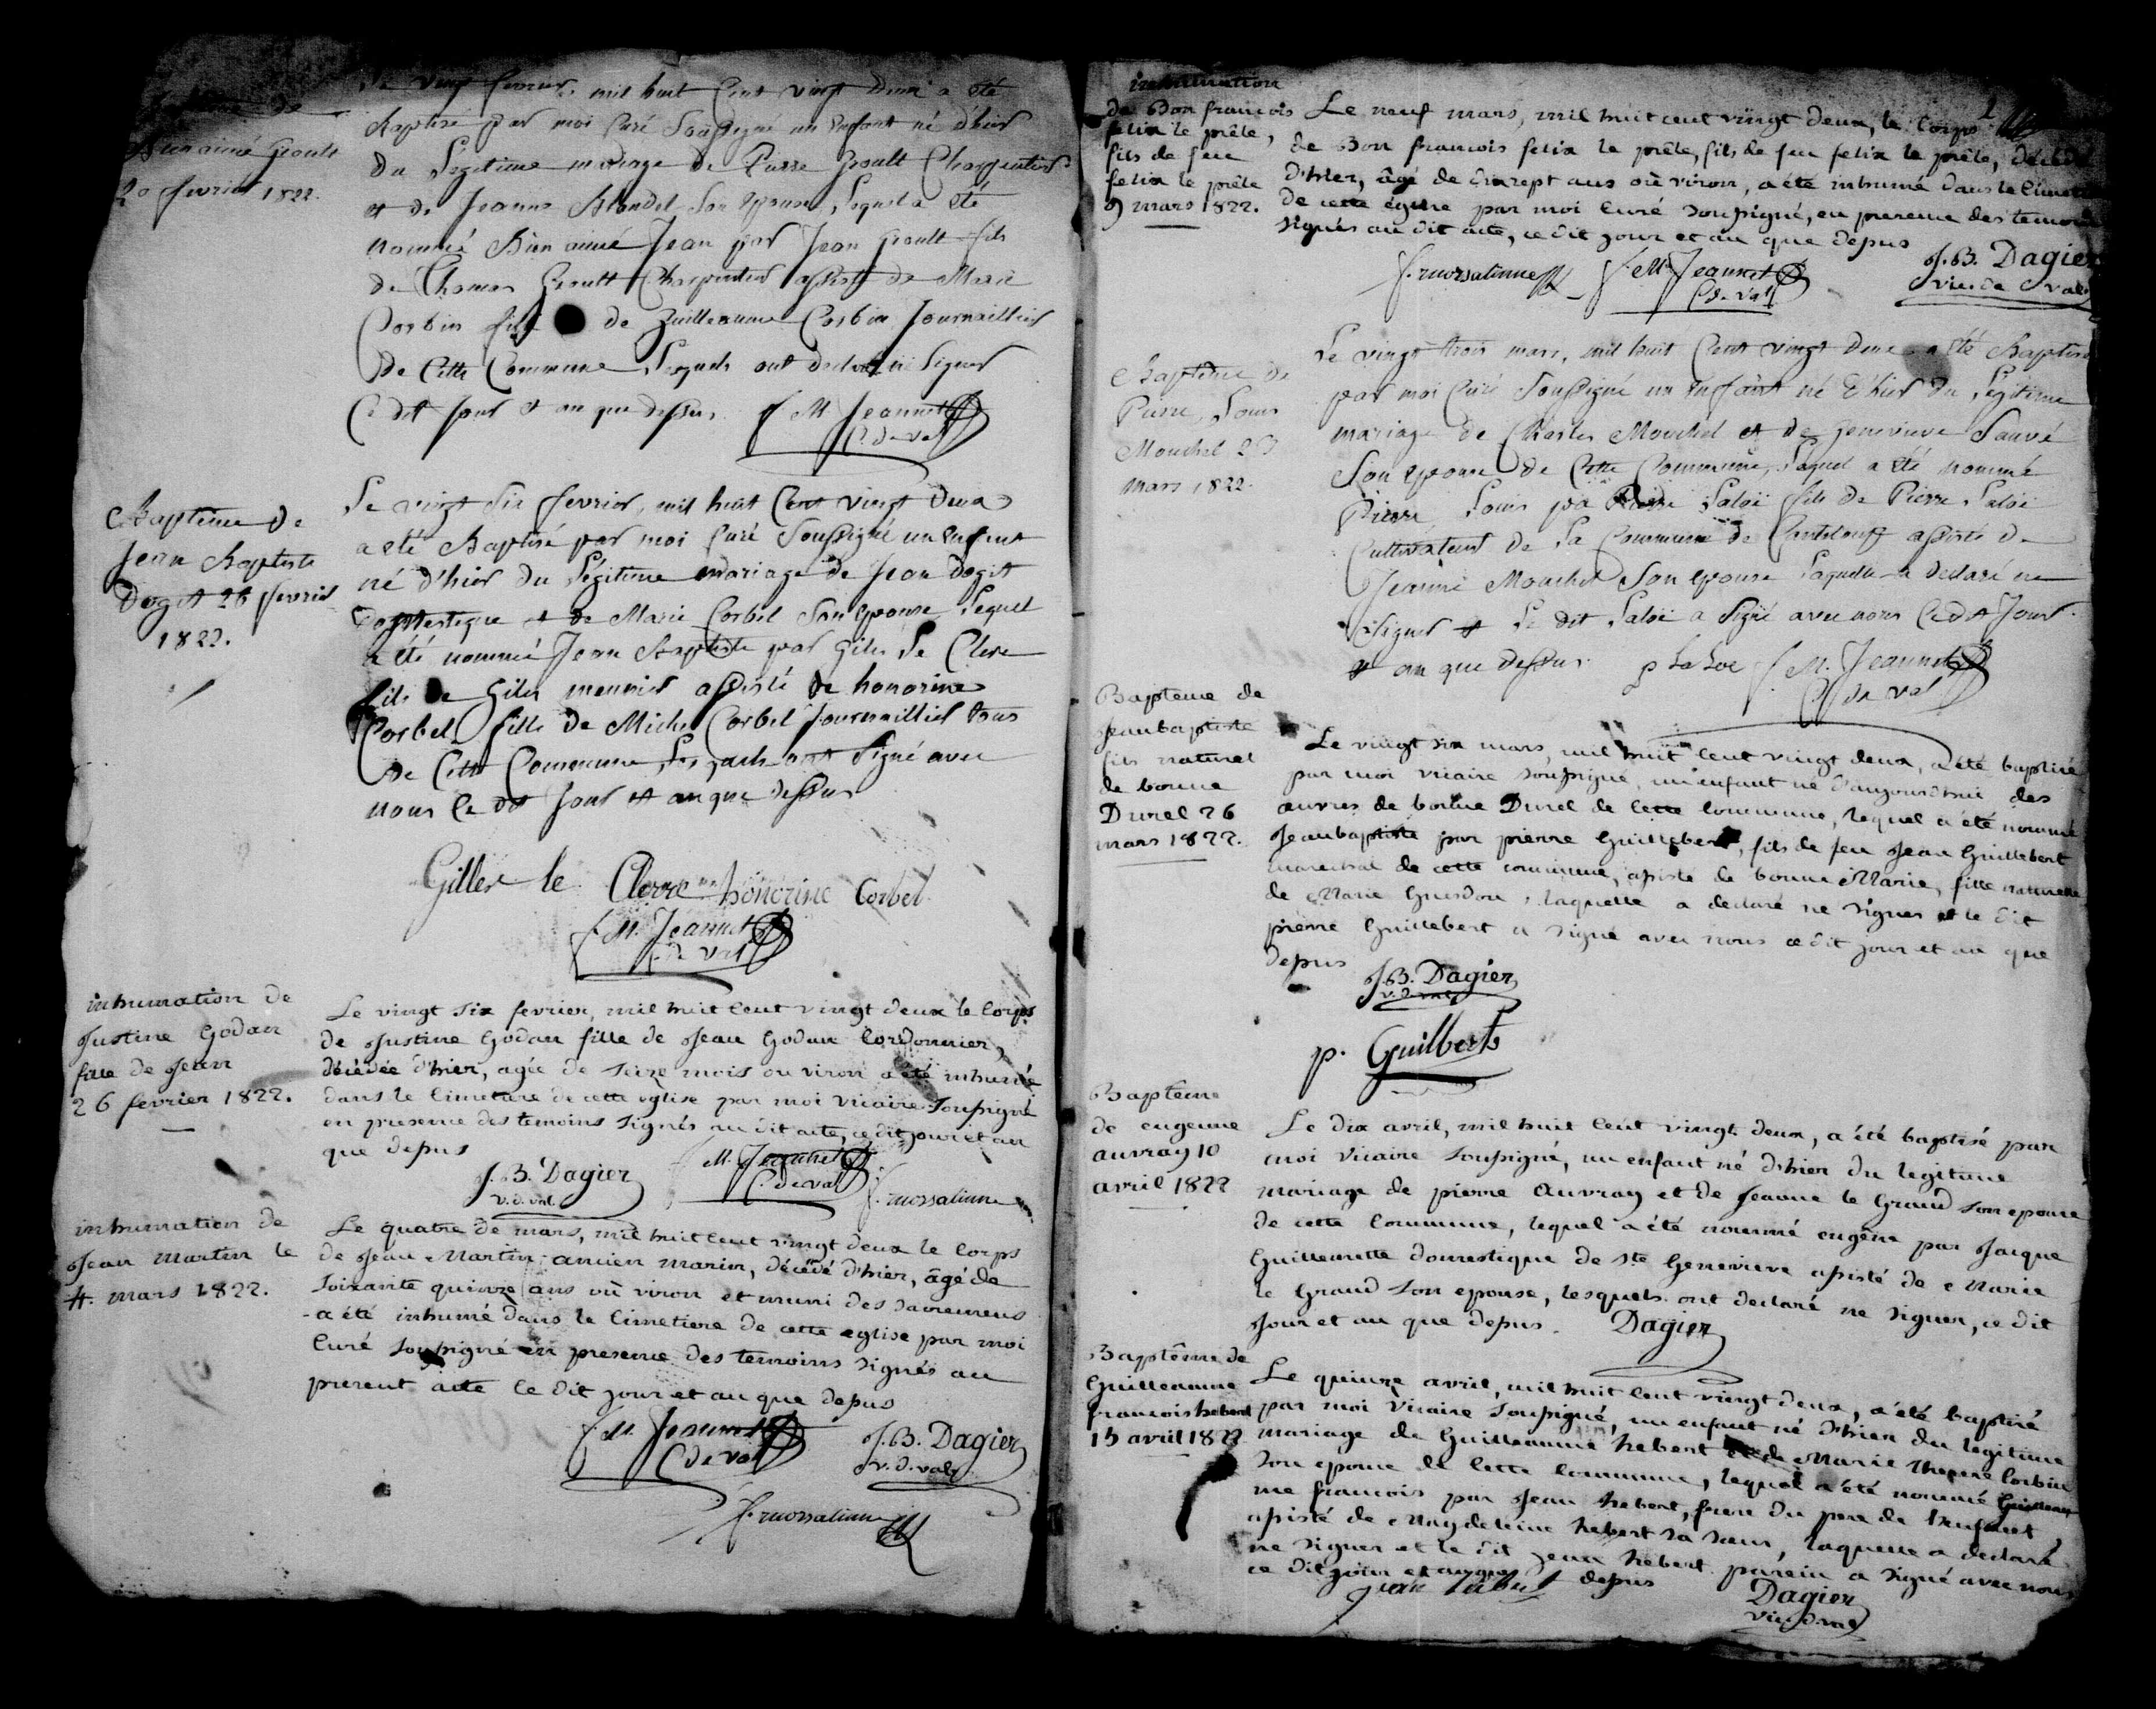 Baptême de
Bienaimé Groult
20 fevrier 1822.
Le vingt fevrier, mil huit Cent vingt deux a été
Baptisé par moi Curé Soussigné un Enfant né d'hier
du Legitime mariage de Pierre Groult Charpentier
et de Jeanne Blondel Son epouse, Lequel a été
nommé Bien aimé Jean par Jean Groult fils
de Thomas Groult Charpentier assisté de Marie
Corbin fille de Guilleaume Corbin Journaillier
de Cette Commune Lesquels ont declaré ne Signer
Ce dit jour et an que dessus. f M Jeannet
C. de val
Baptême de
Jean Baptiste
Dogit 26 fevrier
1822.
Le vingt Six fevrier, mil huit Cent vingt deux
a été Baptisé par moi Curé Soussigné un Enfant
né d'hier du Légitime mariage de Jean Dogit
Domestique et de Marie Corbel Son epouse Lequel
a été nommé Jean Baptiste par Giles Le Clerc
fils de Giles meunier assisté de honorine
Corbel fille de Michel Corbel Journaillier tous
de Cette Commune Lesquels ont Signé avec
nous Ce dit Jour et an que dessus
Gilles le Clerc honorine Corbel
f M. Jeannet
C. de val
inhumation de
Justine Godan
fille de Jean
26 fevrier 1822.
Le vingt six fevrier, mil huit cent vingt deux le corps
de Justine Godan fille de Jean Godan Cordonnier,
décédée d'hier, agée de seize mois ou viron a été inhumée
dans le Cimetiere de cette eglise par moi vicaire Soussigné
en presence des temoins signés au dit acte, ce dit jour et an
que dessus
J. B. Dagier
v. d. val.
M. Jeannet
C. de val
f. morsalinne
inhumation de
Jean Martin le
4. mars 1822.
Le quatre de mars, mil huit cent vingt deux le corps
de Jean Martin, ancien marin, décédé d'hier, âgé de
soixante quinze ans où viron et muni des sacremens
a été inhumé dans le Cimetiere de cette eglise par moi
Curé soussigné en presence des temoins signés au
present acte le dit jour et an que dessus
f M. Jeannet
C de val
J. B. Dagier
v. d. val
f. morsalinne
inhumation
de Bon francois
felix le prêle,
fils de feu
felix le prêle
9 mars 1822.
Le neuf mars, mil huit cent vingt deux, le Corps
de Bon francois felix le prêle, fils de feu felix le prêle, décédé
d'hier, âgé de dix sept ans où viron, a été inhumé dans le cimetiere
de cette eglise par moi curé soussigné, en presence des temoins
signés au dit acte, ce dit jour et an que dessus
f. morsalinne f. M Jeannet
C de val
J. B. Dagier
vic. de val
Baptême de
Pierre, Louis
Mouchel 23
mars 1822.
Le vingt trois mars, mil huit Cent vingt deux a été Baptisé
par moi Curé Soussigné un Enfant né d'hier du Légitime
mariage de Charles Mouchel et de Genevieve Sauvé
Son epouse de Cette Commune, Lequel a été nommé
Pierre, Louis par Pierre Laloë fils de Pierre Laloë
Cultivateur de La Commune de Canteloup assisté de
Jeanne Mouchel Son epouse Laquelle a declaré ne
Signer et Le dit Laloë a Signé avec nous Ce dit Jour
et an que dessus. p LaLoe f M. Jeannet
C de val
Bapteme de
Jeanbaptiste
fils naturel
de bonne
Durel 26
mars 1822.
Le vingt six mars, mil huit cent vingt deux, a été baptisé
par moi vicaire soussigné, un enfant né d'aujourd'hui des
œuvres de bonne Durel de cette commune, lequel a été nommé
Jeanbaptiste par pierre Guillebert, fils de feu Jean Guillebert
marechal de cette commune, assisté de bonne Marie, fille naturelle
de Marie Guesdon, laquelle a declaré ne signer et le dit
pierre Guillebert a signé avec nous ce dit jour et an que
dessus J. B. Dagier
v. d. val
p. Guilbert
Bapteme
de eugenne
auvray 10
avril 1822
Le dix avril, mil huit cent vingt deux, a été baptisé par
moi vicaire soussigné, un enfant né d'hier du legitime
mariage de pierre Auvray et de Jeanne le Grand son epouse
de cette Commune, lequel a été nommé eugêne par Jacque
Guillemette domestique de Ste Genevieve assisté de Marie
le Grand son epouse, lesquels ont declaré ne signer, ce dit
Jour et an que dessus. Dagier
Baptême de
Guilleaume
francois hebert
15 avril 1822
Le quinze avril, mil huit cent vingt deux, a été baptisé
par moi vicaire soussigné, un enfant né d'hier du legitime
mariage de Guilleaume hebert et de Marie therese Corbin
son epouse de cette Commune, lequel a été nommé Guilleau
me francois par Jean hebert, frere du pere de l'enfant,
assisté de Magdeleine hebert sa sœur, laquelle a declaré
ne signer et le dit Jean hebert parein a signé avec nous
ce dit jour et an que dessus
jean hebert
Dagier
vic. d. val